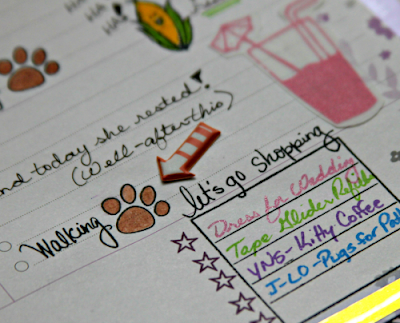 HA
HA
HA
and today she rested!
(Well-after-this)
let's go shopping
Walking
Dress for Wedding
Tape Glider Refills
YNS-Kitty Coffee
J-LO-Pugs for